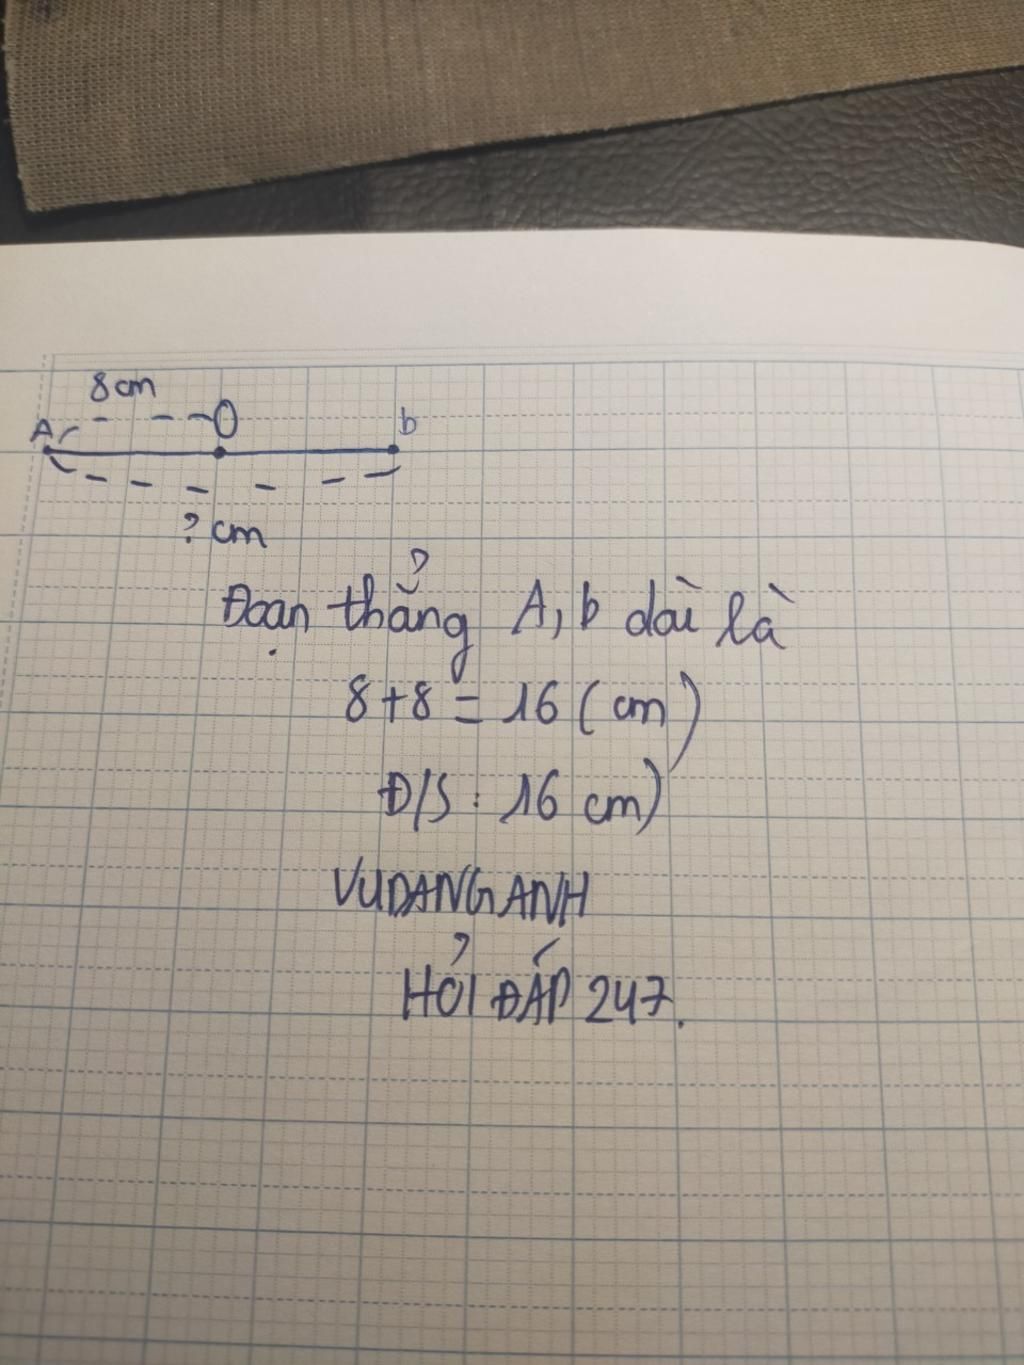 8cm
A O b
? cm
Đoạn thẳng A, b dài là
8+8 = 16 (cm)
Đ/S : 16 cm)
VUDANGANH
HỎI ĐÁP 247.